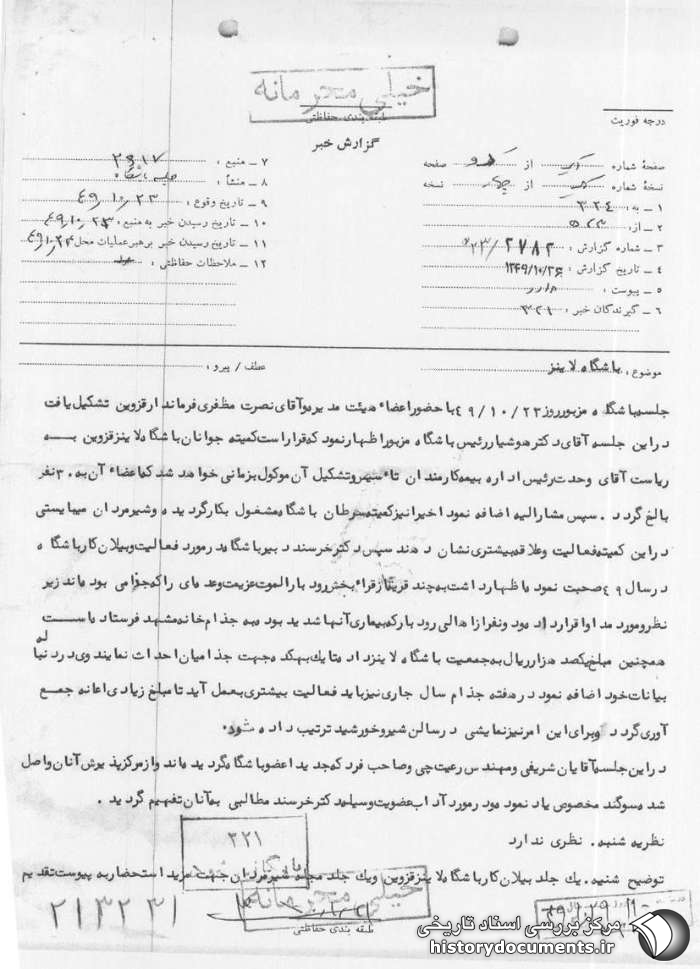 خیلی محرمانه
طبقه بندی حفاظتی
گزارش خبر
درجه فوریت
صفحهٔ شماره یک از دو صفحه
نسخهٔ شماره یک از چهار نسخه
۱ ـ به : ۳۲۴
۲ ـ از : ۵۲۳
۳ ـ شماره گزارش : ۲۷۸۲/۲۳
۴ ـ تاریخ گزارش : ۱۳۴۹/۱۰/۲۶
۵ ـ پیوست : دارد
۶ ـ گیرندگان خبر : ۳۲۱
۷ ـ منبع : ۲۹۱۷
۸ ـ منشأ :
۹ ـ تاریخ وقوع : ۴۹٫۱۰٫۲۳
۱۰ ـ تاریخ رسیدن خبر به منبع : ۴۹٫۱۰٫۲۳
۱۱ ـ تاریخ رسیدن خبر به رهبر عملیات محل ۴۹٫۱۰٫۲۴
۱۲ ـ ملاحظات حفاظتی :
موضوع : باشگاه لاینز
عطف / پیرو :
جلسه باشگاه مزبور روز ۴۹/۱۰/۲۳ با حضور اعضاء هیئت مدیره و آقای نصرت مظفری فرماندار قزوین تشکیل یافت
در این جلسه آقای دکتر هوشیار رئیس باشگاه مزبور اظهار نمود که قرار است کمیته جوانان باشگاه لاینز قزوین به
ریاست آقای وحدت رئیس اداره بیمه کارمندان تاسیس و تشکیل آن موکول بزمانی خواهد شد که اعضاء آن به ۳۰ نفر
بالغ گردد . سپس مشارالیه اضافه نمود اخیرا نیز کمیته سرطان باشگاه مشغول بکار گردیده و شیرمردان میبایستی
در این کمیته فعالیت و علاقه بیشتری نشان دهند سپس دکتر خرسند دبیر باشگاه در مورد فعالیت و بیلان کار باشگاه
در سال ۴۹ صحبت نمود و اظهار داشت به چند قریه از قراء بخش رودبار الموت عزیمت و عده‌ای را که جزامی بوده‌اند زیر
نظر و مورد مداوا قرار داده و دو نفر از اهالی رودبار که بیماری آنها شدید بوده به جذام خانه مشهد فرستاده است
همچنین مبلغ یکصد هزار ریال به جمعیت باشگاه لاینز داده تا یک بهکده جهت جذامیان احداث نمایند وی در دنباله
بیانات خود اضافه نمود در هفته جذام سال جاری نیز باید فعالیت بیشتری بعمل آید تا مبلغ زیادی اعانه جمع
آوری گردد و برای این امر نیز نمایشی در سالن شیر و خورشید ترتیب داده شود .
در این جلسه آقایان شریفی و مهندس رعیت‌چی و صاحب فرد که جدید اعضو باشگاه گردیده‌اند و از مرکز پذیرش آنان واصل
شده سوگند مخصوص یاد نموده و در مورد آداب عضویت وسیله دکتر خرسند مطالبی به آنان تفهیم گردید .
نظریه شنبه . نظری ندارد
توضیح شنبه . یک جلد بیلان کار باشگاه لاینز قزوین و یک جلد مجله شیرمردان جهت مزید استحضار به پیوست تقدیم
۳۲۱
خیلی محرمانه
طبقه بندی حفاظتی
۲۱۳۲۳۱
مرکز بررسی اسناد تاریخی
historydocuments.ir